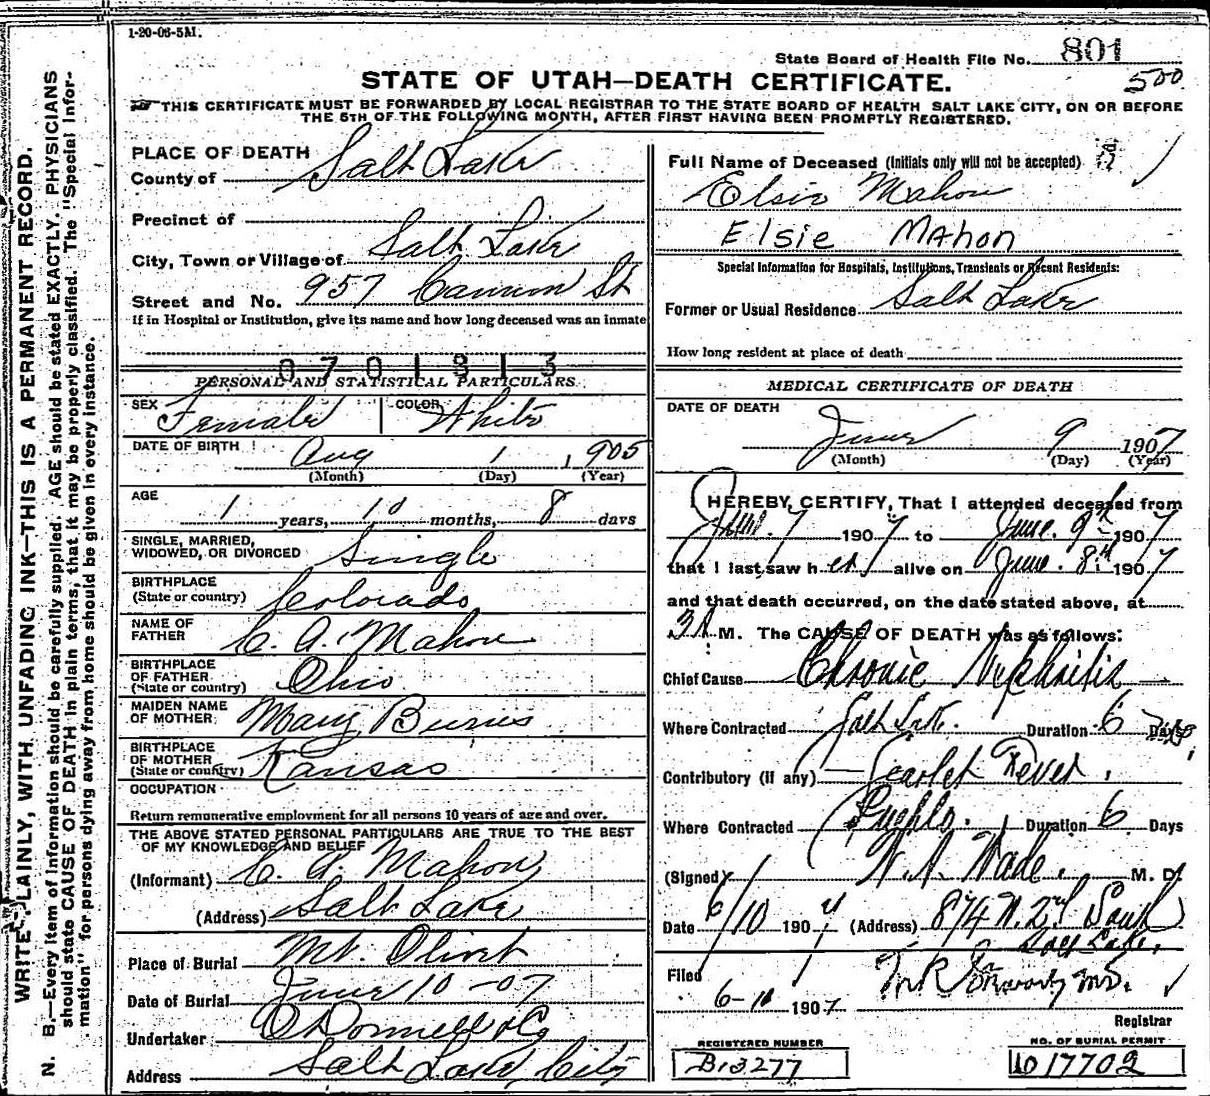 1-20-06-5M.
State Board of Health File No. 801
500
STATE OF UTAH—DEATH CERTIFICATE.
THIS CERTIFICATE MUST BE FORWARDED BY LOCAL REGISTRAR TO THE STATE BOARD OF HEALTH SALT LAKE CITY, ON OR BEFORE
THE 5TH OF THE FOLLOWING MONTH, AFTER FIRST HAVING BEEN PROMPTLY REGISTERED.
WRITE PLAINLY, WITH UNFADING INK—THIS IS A PERMANENT RECORD.
N. B.—Every item of information should be carefully supplied. AGE should be stated EXACTLY. PHYSICIANS
should state CAUSE OF DEATH in plain terms, that it may be properly classified. The "Special Infor-
mation" for persons dying away from home should be given in every instance.
PLACE OF DEATH
County of Salt Lake
Precinct of
City, Town or Village of Salt Lake
Street and No. 957 Cannon St
If in Hospital or Institution, give its name and how long deceased was an inmate
0701813
PERSONAL AND STATISTICAL PARTICULARS.
SEX Female COLOR White
DATE OF BIRTH Aug 1, 1905
(Month) (Day) (Year)
AGE
1 years, 10 months, 8 days
SINGLE, MARRIED,
WIDOWED, OR DIVORCED Single
BIRTHPLACE
(State or country) Colorado
NAME OF
FATHER C. A. Mahon
BIRTHPLACE
OF FATHER
(State or country) Ohio
MAIDEN NAME
OF MOTHER Mary Burns
BIRTHPLACE
OF MOTHER
(State or country) Kansas
OCCUPATION
Return remunerative employment for all persons 10 years of age and over.
THE ABOVE STATED PERSONAL PARTICULARS ARE TRUE TO THE BEST
OF MY KNOWLEDGE AND BELIEF
(Informant) C. A. Mahon
(Address) Salt Lake
Place of Burial Mt. Olivet
Date of Burial June 10-07
Undertaker O'Donnell & Co
Address Salt Lake City
Full Name of Deceased (Initials only will not be accepted)
Elsie Mahon
Elsie Mahon
Special Information for Hospitals, Institutions, Transients or Recent Residents:
Former or Usual Residence Salt Lake
How long resident at place of death
MEDICAL CERTIFICATE OF DEATH
DATE OF DEATH
June 9 1907
(Month) (Day) (Year)
I HEREBY CERTIFY, That I attended deceased from
June. 7 1907 to June. 9th 1907
that I last saw her alive on June. 8th 1907
and that death occurred, on the date stated above, at
3 A. M. The CAUSE OF DEATH was as follows:
Chief Cause Chronic Nephritis
Where Contracted Salt Lake. Duration 6 Days
Contributory (if any) Scarlet Fever.
Where Contracted Pueblo. Duration 6 Days
(Signed) Wade. M. D.
Date 6/10 1907 (Address) 874 W. 2nd South
Salt Lake.
Filed
6-10 1907 M.D.
Registrar
REGISTERED NUMBER
B13277
NO. OF BURIAL PERMIT
1017702